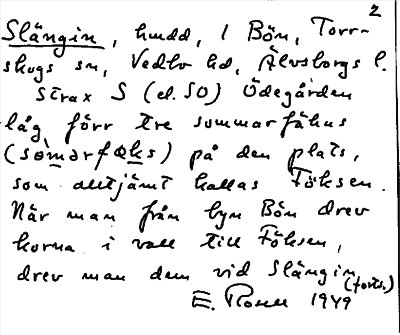 2
Slängin, hmdd, 1 Bön, Torr-
skogs sn, Vedbo hd, Älvsborgs l.
Strax S (el. SO) Ödegården
låg förr tre sommarfähus
(sòmarfæks) på den plats,
som alltjämt kallas Föksen.
När man från byn Bön drev
korna i vall till Föksen,
drev man dem vid Slängin
(forts.)
E. Rosell 1949